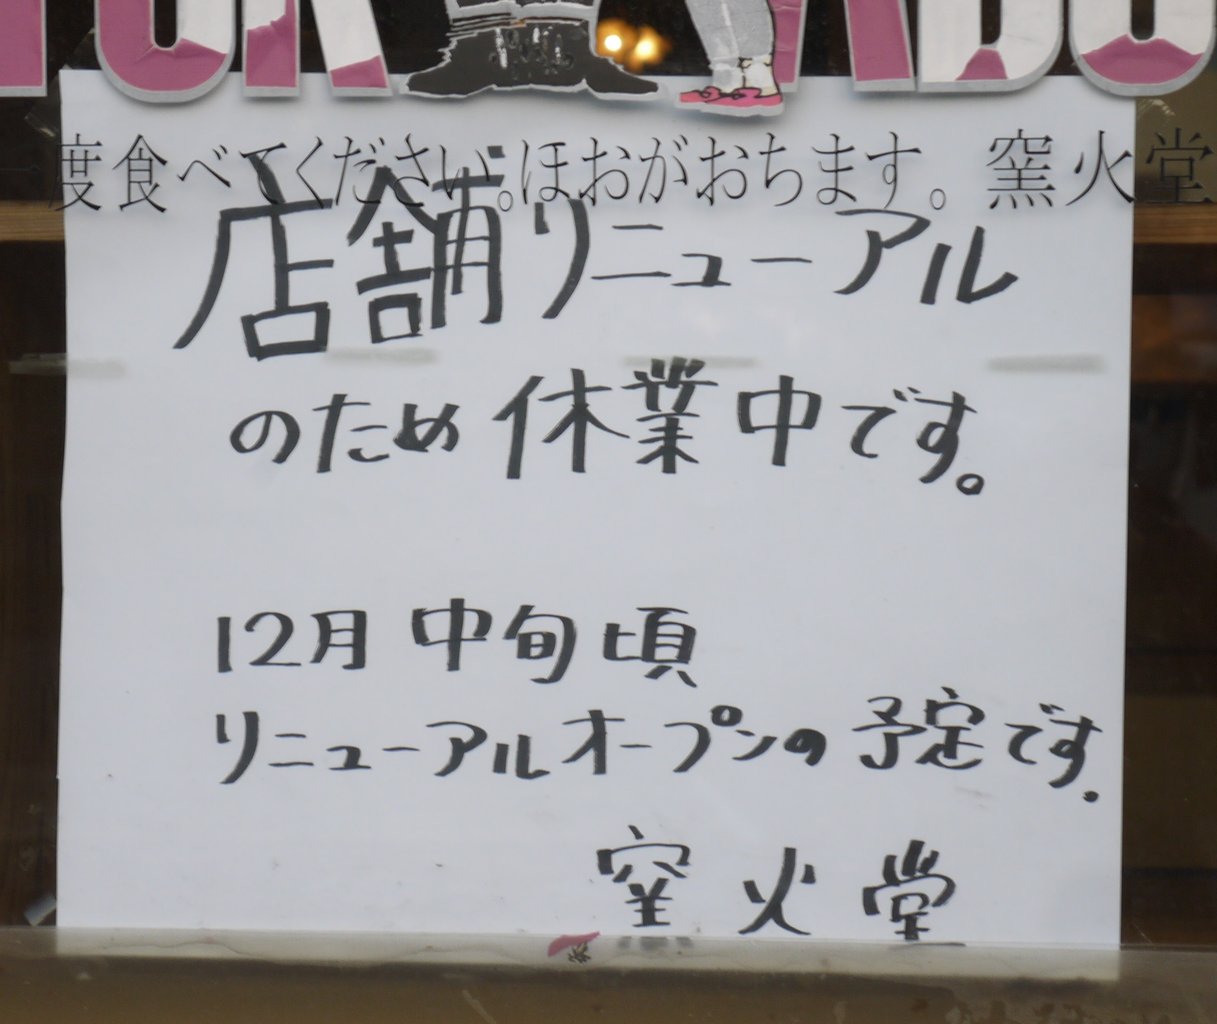 度食べてください。ほおがおちます。窯火堂
店舗リニューアル
のため休業中です。
12月中旬頃
リニューアルオープンの予定です.
窯火堂